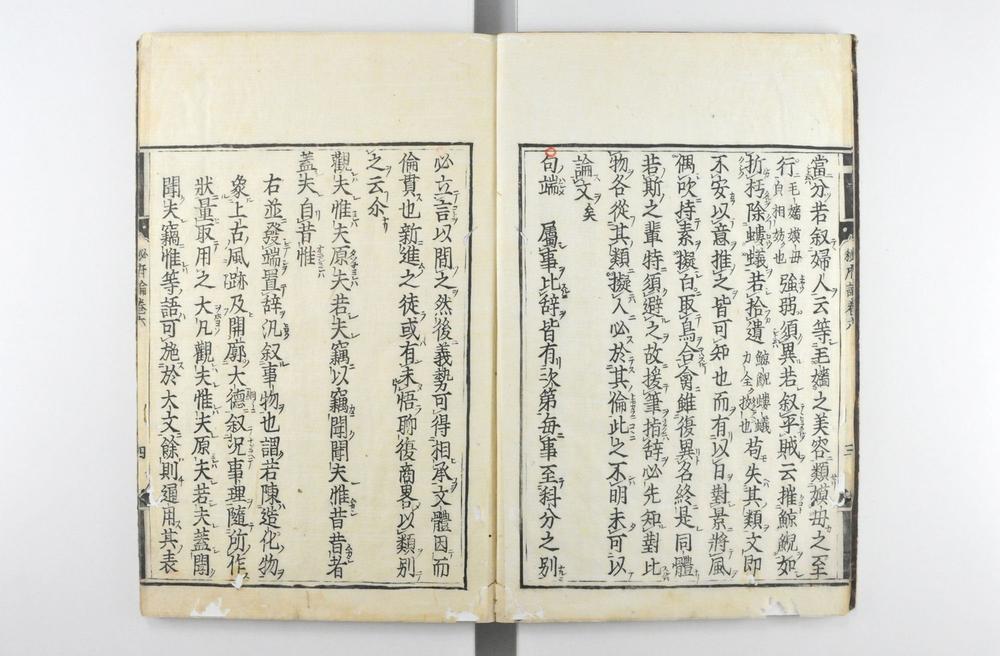 當分若叙婦人云等毛嬙之美容類嫫母之至
行毛嬙嫫母貞相妨也強弱須異若叙平賊云摧鯨鯢如
拆朽除螻蟻若拾遺鯨鯢螻蟻力全挍也苟失其類文即
不安以意推之皆可知也而有以日對景將風
偶吹持素擬白取鳥合禽雖復異名終是同體
若斯之輩特須避之故援筆措辞必先知對比
物各從其類擬人必於其倫此之不明未可以
論文矣
句端 屬事比辞皆有次第每事至科分之別
必立言以間之然後義勢可得相承文體因而
倫貫也新進之徒或有未悟聊復商畧以類別
之云尒
觀夫惟夫原夫若夫竊以竊聞聞夫惟昔昔者
蓋夫自昔惟
右並發端置辞汎叙事物也謂若陳造化物
象上古風跡及開廓大德叙況事理隨所作
狀量取用之大凡觀夫惟夫原夫若夫蓋聞
聞夫竊惟等語可施於大文餘則通用其表
秘府論卷六 三
秘府論卷六 四